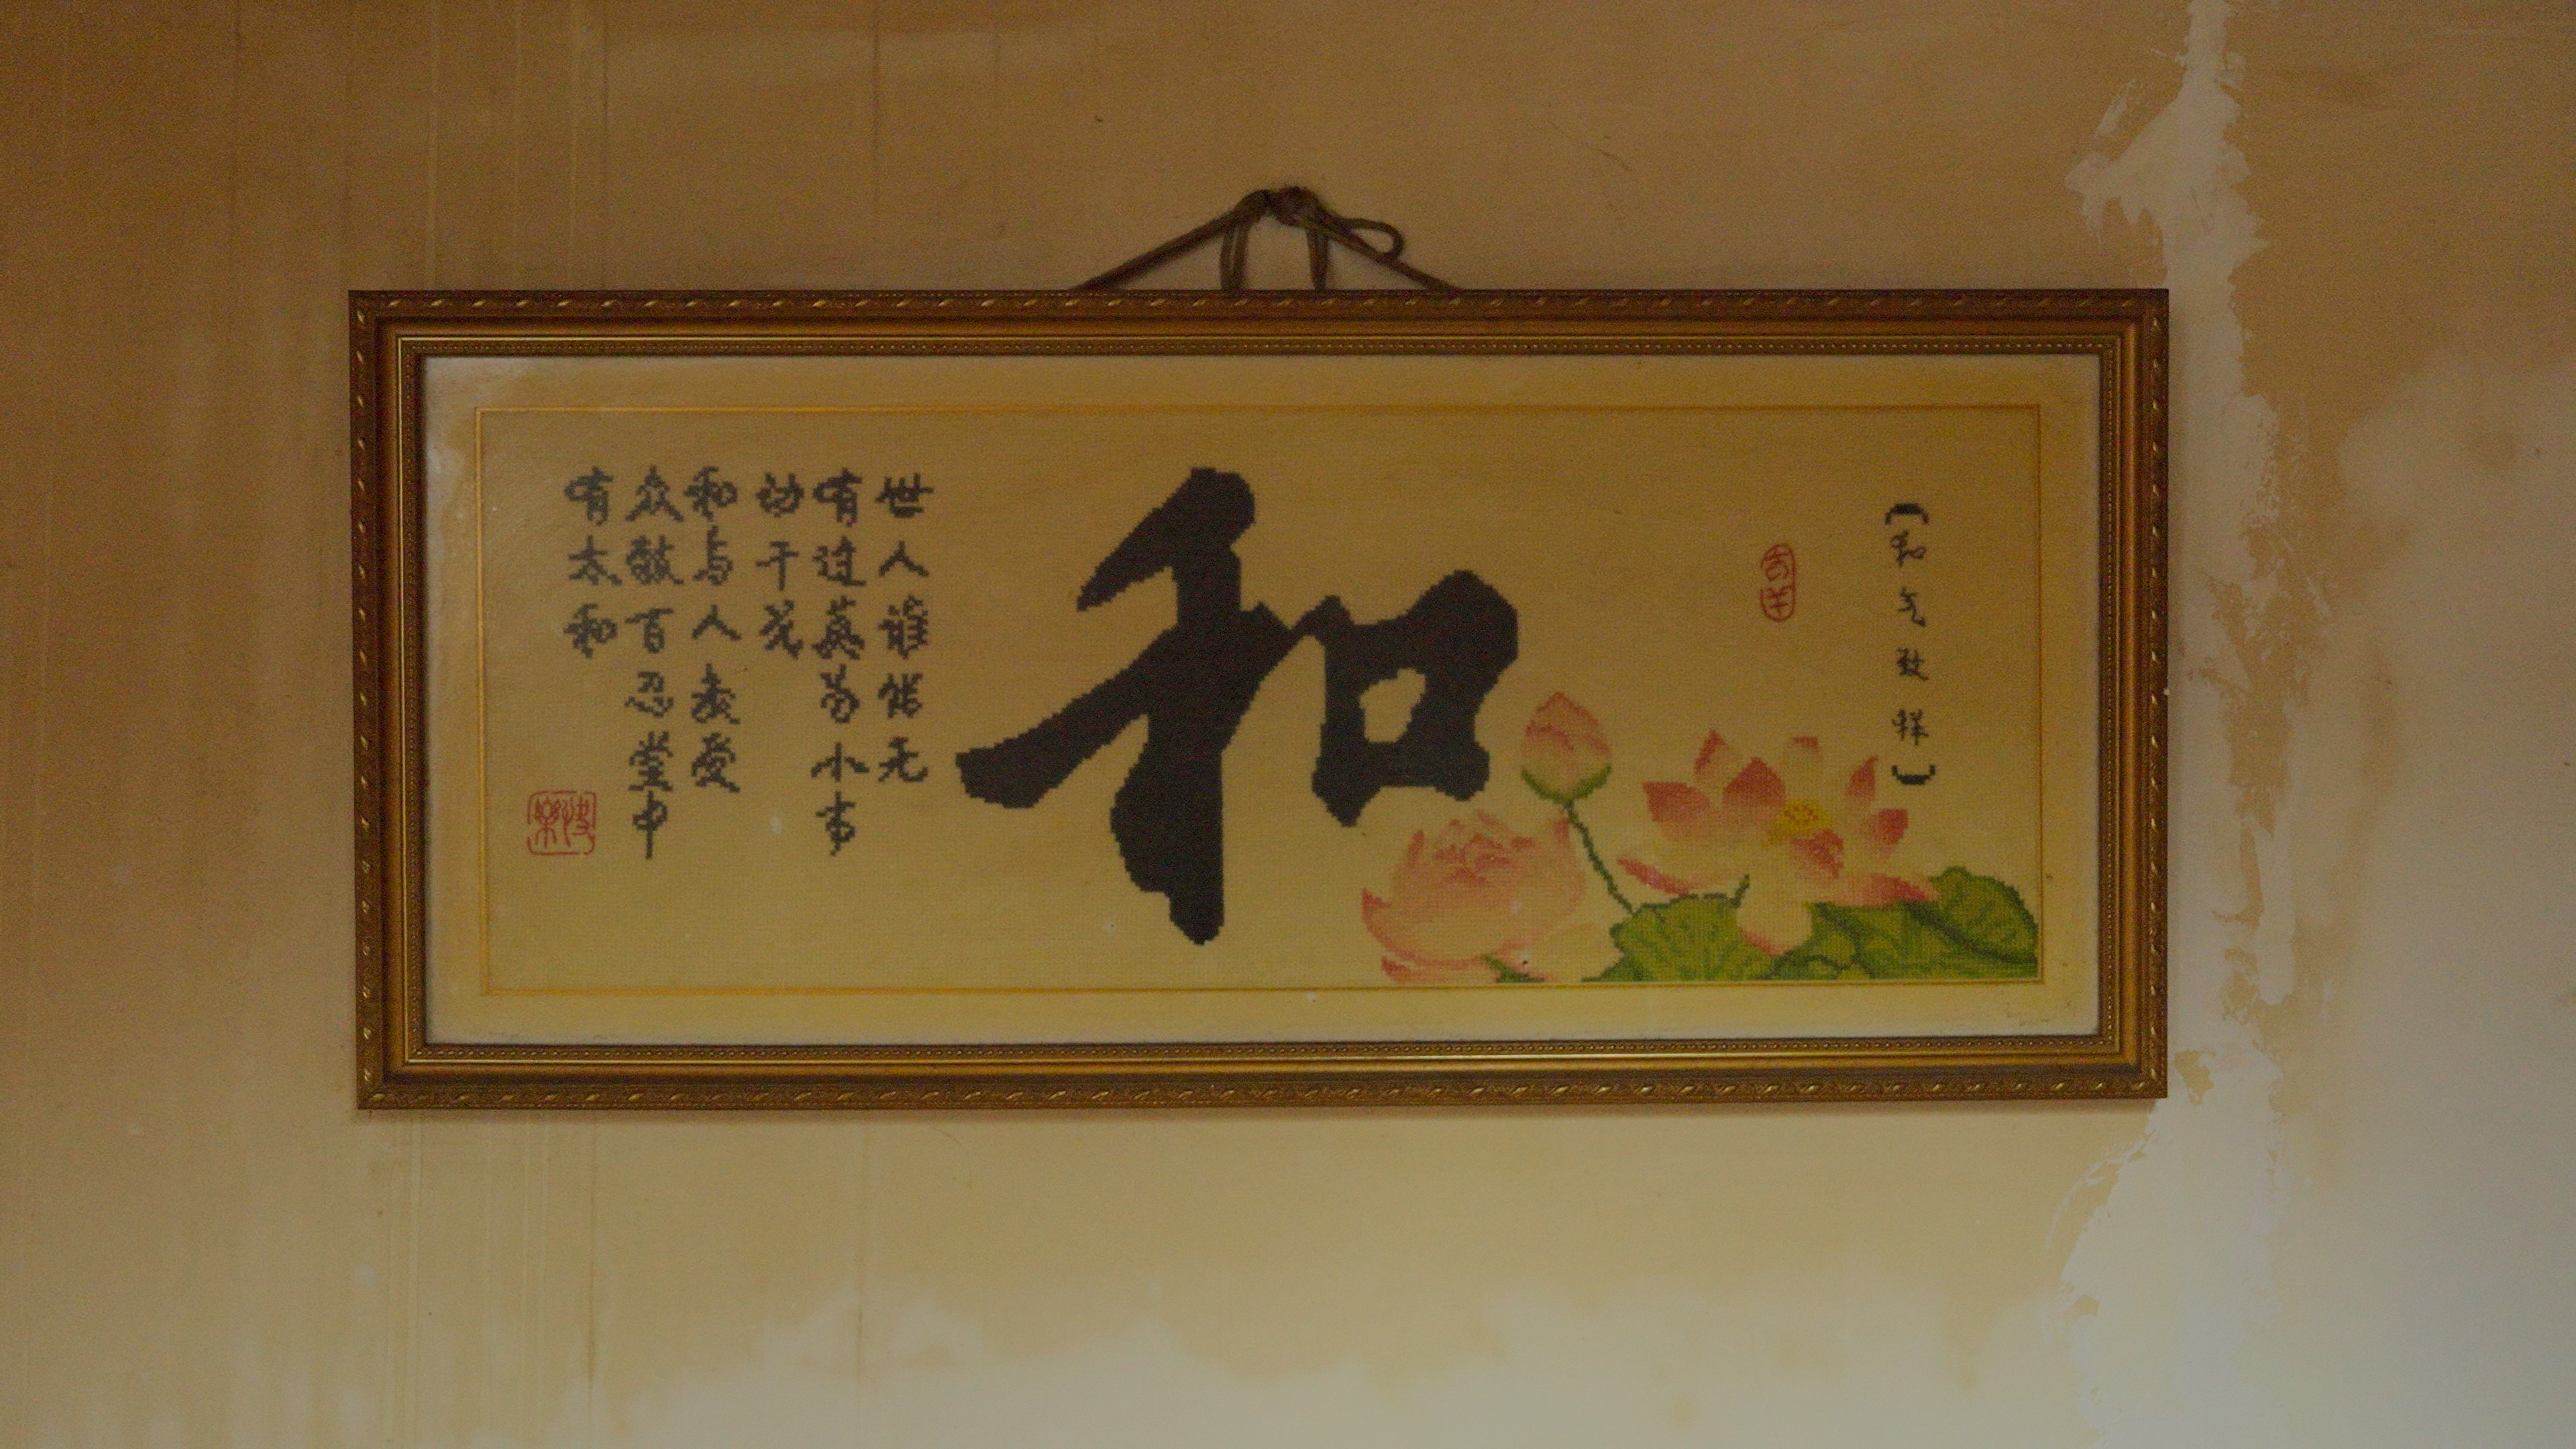 【和气致祥】
和
世人谁能无
有过莫为小事
动干戈
和与人友爱
众敬百忍堂中
有太和